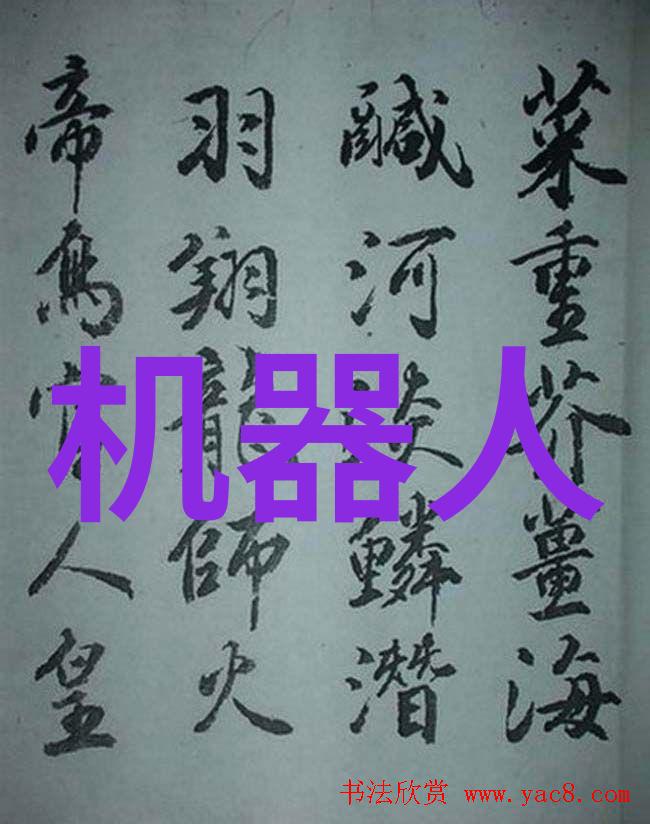 菜重芥薑海
鹹河淡鱗潛
羽翔龍師火
帝鳥官人皇
机器人
书法欣赏 www.yac8.com